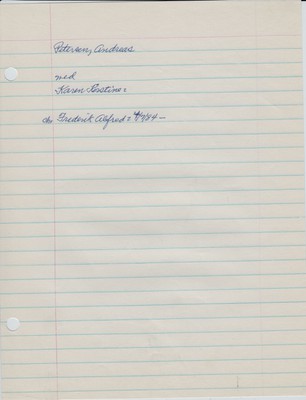 Petersen, Andreas
med
Karen Kirstine =
ch. Frederik Alfred =